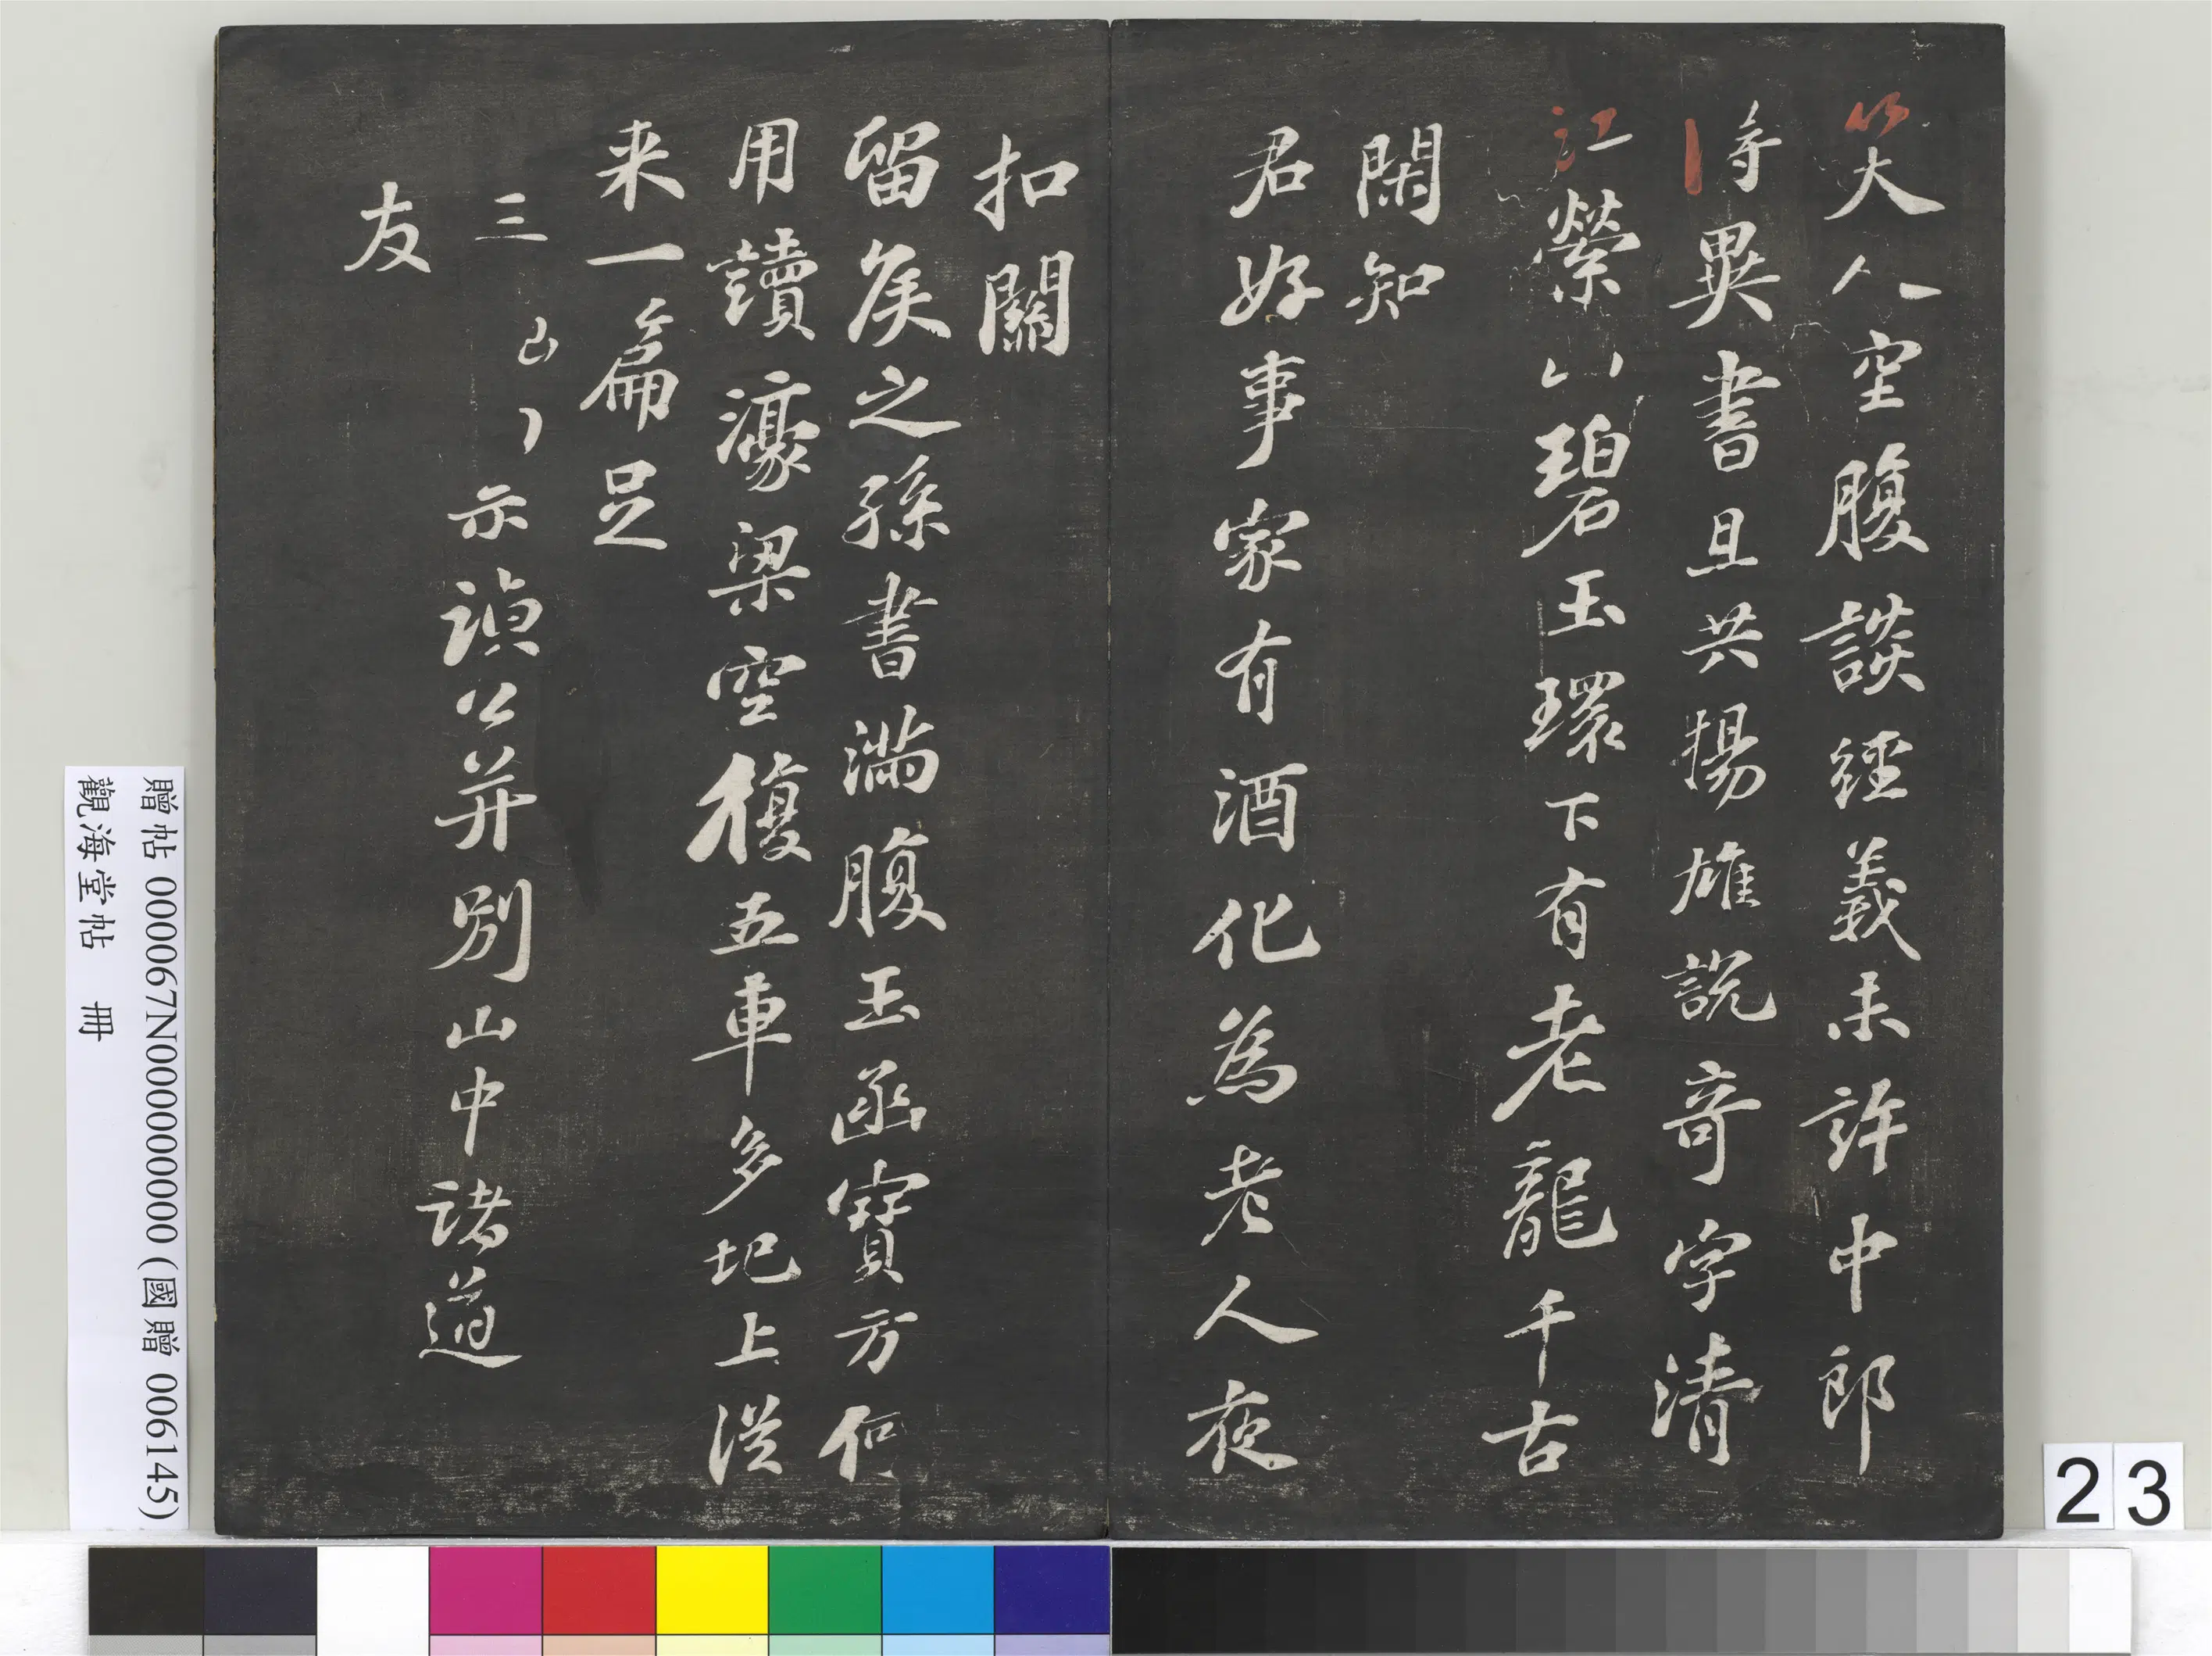 笑大人空腹談經義未許中郎
得異書且共揚雄說奇字清
江縈山碧玉環下有老龍千古
閑知
君好事家有酒化為老人夜
扣關
留侯之孫書滿腹玉函寶方何
用讀濠梁空復五車多圯上從
来一篇足
三
示 禎公并別山中諸道
友
贈帖 000067N000000000 (國贈 006145)
觀海堂帖 冊
23